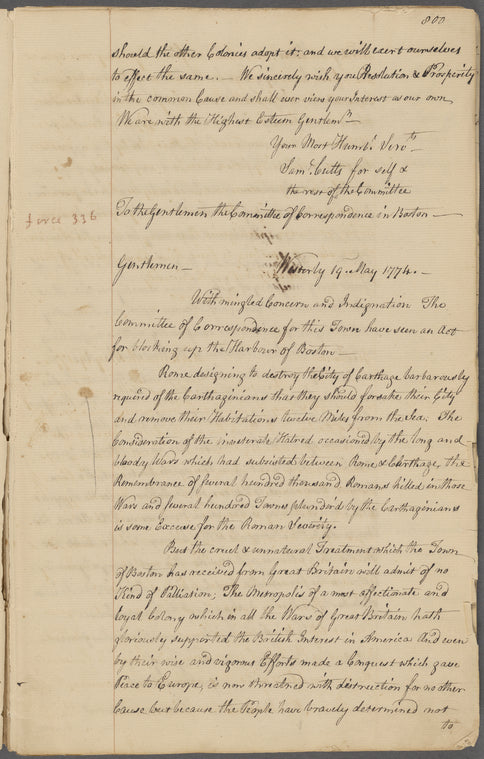 800
should the other Colonies adopt it: and we will exert ourselves
to effect the same. — We sincerely wish you Resolution & Prosperity
in the common Cause and shall ever view your Interest as our own
We are with the Highest Esteem Gentlemn. —
Your Most Humbl. Servts.
Saml. Cutts for self &
the rest of the Committee
To the Gentlemen the Committee of Correspondence in Boston —
force 336
Gentlemen — Westerly 19. May 1774. —
With mingled Concern and Indignation The
Committee of Correspondence for this Town have seen an Act
for blocking up the Harbour of Boston —
Rome designing to destroy the City of Carthage barbarously
required of the Carthaginians that they should forsake their City
and remove their Habitations twelve Miles from the Sea. The
Consideration of the inveterate Hatred occasioned by the long and
bloody Wars which had subsisted between Rome & Carthage, the
Remembrance of several hundred thousand Romans killed in those
Wars and several hundred Towns plunderd by the Carthaginians
is some Excuse for the Roman Severity.
But the cruel & unnatural Treatment which the Town
of Boston has received from Great Britain will admit of no
Kind of Palliation; The Metropolis of a most affectionate and
loyal Colony which in all the Wars of Great Britain hath
gloriously supported the British Interest in America And even
by their wise and vigorous Efforts made a Conquest which gave
Peace to Europe, is now threatned with destruction for no other
Cause but because the People have bravely determined not
to